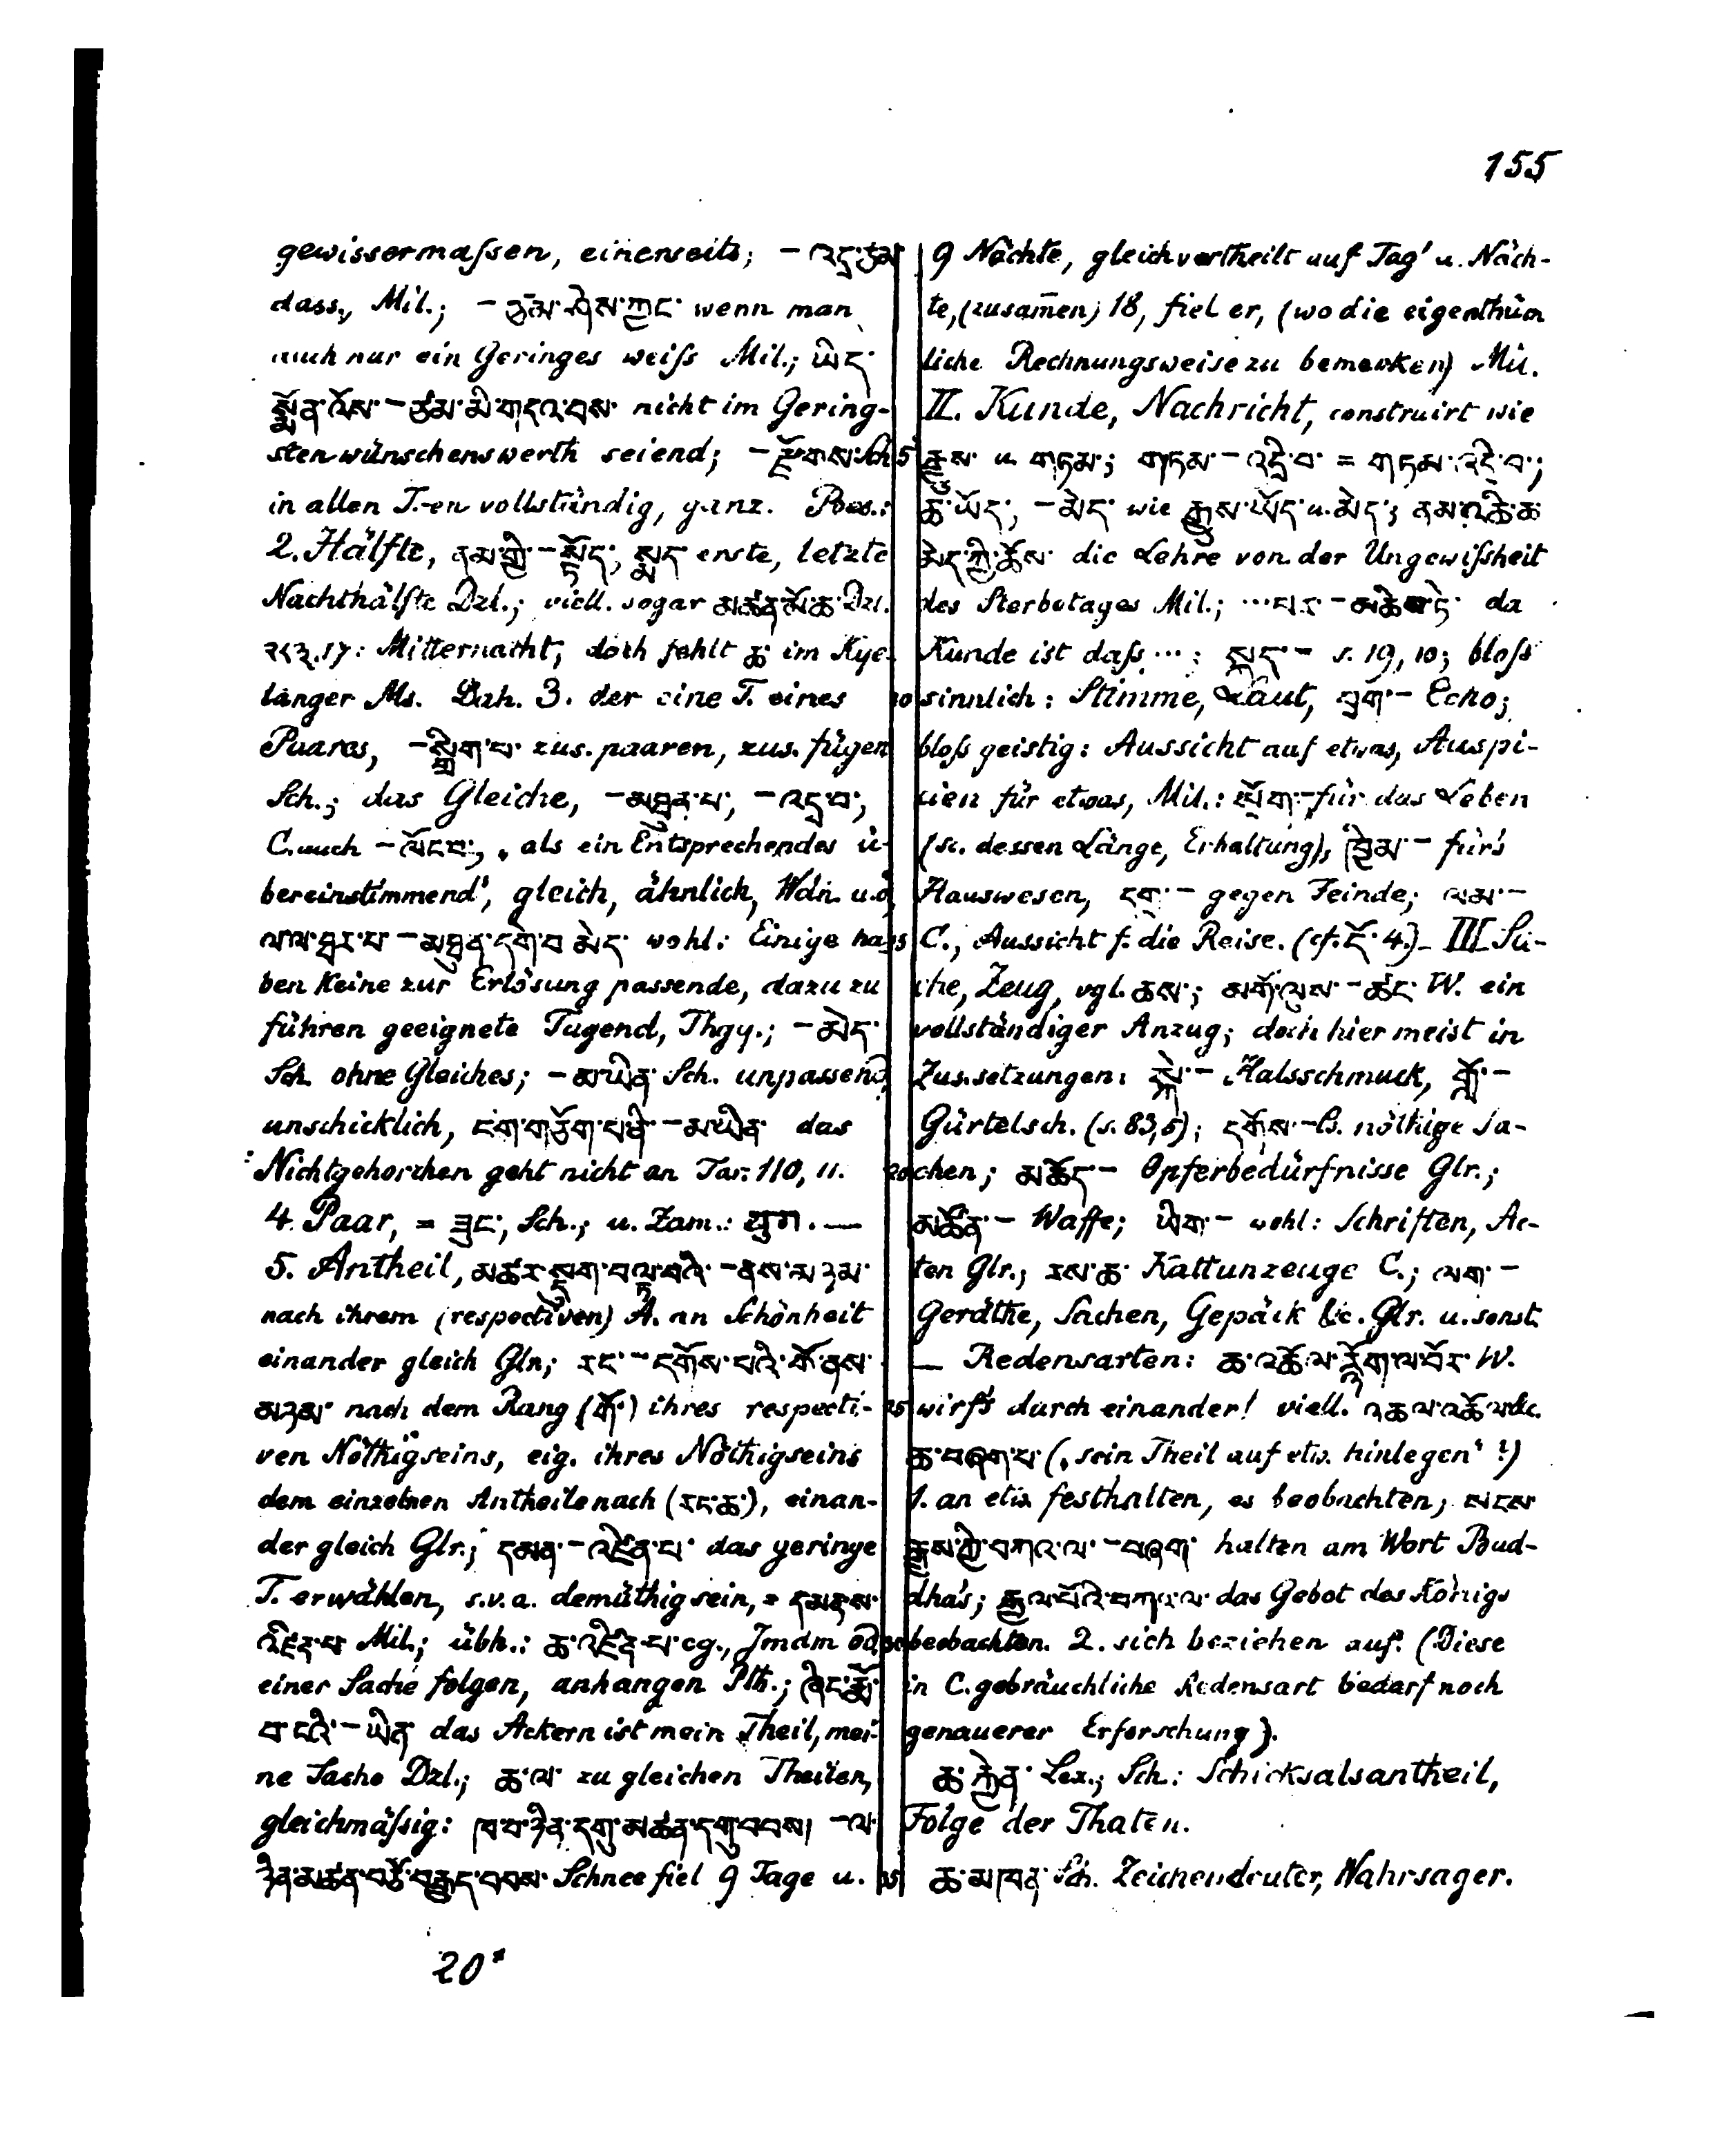 155
gewissermaſsen, einerseits; – འདྲ་ཙམ
dass., Mil.; – ཙམ་ཤེས་ཀྱང་ wenn man
auch nur ein Geringes weiſs Mil.; ཡིད་
སྨོན་འོས་ – ཙམ་མི་གདའ་བས་ nicht im Gering-
sten wünschenswerth seiend; – རྫོགས་ Sch.
in allen T.-en vollständig, ganz. Bes.:
2. Hälfte, ནམ་གྱི་ – སྟོད་, སྨད erste, letzte
Nachthälfte Dzl.; viell. sogar མཚན་མོ་ཆ་ Dzl.
༢༨༣.༡༧: Mitternacht; doch fehlt ཆ་ im Kye-
langer Ms. Dah. 3. der eine T. eines
Paares, – སྒྲིག་པ་ zus. paaren, zus. fügen
Sch.; das Gleiche, – མཐུན་པ་, – འདྲ་བ་,
C. auch – ལོང་བ་, ‚als ein Entsprechendes ü-
bereinstimmend‘, gleich, ähnlich, Wdn. u. ö.
ལ་ལ་ཐར་པ་ – མཐུན་དགེ་བ་མེད་ wohl: Einige ha-
ben keine zur Erlösung passende, dazu zu
führen geeignete Tugend, Thgy.; – མེད་
Sch. ohne Gleiches; – མ་ཡིན་ Sch. unpassend,
unschicklich, ངག་གཅོག་པའི་ – མ་ཡིན་ das
Nichtgehorchen geht nicht an Tar. 110, 11.
4. Paar, = ཟུང་, Sch.; u. Zam.: युग. —
5. Antheil, མཚར་སྡུག་བལྟ་བའི་ – ནས་མཉམ་
nach ihrem (respectiven) A. an Schönheit
einander gleich Glr.; རང་ – དགོས་པའི་གོ་ནས་
མཉམ་ nach dem Rang (གོ་) ihres respecti-
ven Nöthigseins, eig. ihres Nöthigseins
dem einzelnen Antheile nach (རང་ཆ་), einan-
der gleich Glr.; དམན་ – འཛིན་པ་ das geringe
T. erwählen, s.v.a. demüthig sein, = དམན་ས་
འཛིན་པ་ Mil.; übh.: ཆ་འཛིན་པ་ cg., Jmdm od.
einer Sache folgen, anhangen Pth.; ཞིང་རྨོ་
བ་ངའི་ – ཡིན་ das Ackern ist mein Theil, mei-
ne Sache Dzl.; ཆ་ལ་ zu gleichen Theilen,
gleichmäſsig: ཁ་བ་ཉིན་དགུ་མཚན་དགུ་བབས། – ལ་
ཉིན་མཚན་བཅོ་བརྒྱད་བབས་ Schnee fiel 9 Tage u.
9 Nächte, gleichvertheilt auf Tag' u. Näch-
te, (zusam̄en) 18, fiel er, (wo die eigenthüm
liche Rechnungsweise zu bemerken) Mil.
II. Kunde, Nachricht, construirt wie
5 རྒྱུས་ u. གཏམ་; གཏམ་ – འདྲི་བ་ = གཏམ་འདྲི་བ་;
ཆ་ཡོད་, – མེད་ wie རྒྱུས་ཡོད་ u. མེད་; ནམ་འཆི་ཆ་
མེད་ཀྱི་ཆོས་ die Lehre von der Ungewiſsheit
des Sterbetages Mil.; ... པར་ – མཆིས་ཏེ་ da
Kunde ist daſs ...; སྐད་ – s. 19, 10; bloſs
10 sinnlich: Stimme, Laut, བྲག་ – Echo;
bloſs geistig: Aussicht auf etwas, Auspi-
cien für etwas, Mil.: སྲོག་ – für das Leben
(sc. dessen Länge, Erhaltung), ཁྱིམ་ – für's
Hauswesen, དགྲ་ – gegen Feinde; ལམ་ –
15 C., Aussicht f. die Reise. (cf. ངོ་ 4.) – III. Sa-
che, Zeug, vgl. ཆས་; མགོ་ལུས་ – ཚང་ W. ein
vollständiger Anzug; doch hier meist in
Zus.setzungen: སྐེ་ – Halsschmuck, སྐྲ་ –
Gürtelsch. (s. 83,6); དགོས་ – B. nöthige Sa-
20 chen; མཆོད་ – Opferbedürfnisse Glr.;
མཚོན་ – Waffe; ཡིག་ – wohl: Schriften, Ac-
ten Glr.; རས་ཆ་ Kattunzeuge C.; ལག་ –
Geräthe, Sachen, Gepäck &c. Glr. u. sonst.
— Redensarten: ཆ་འཚོ་ལ་རྙོག་ལ་བོར་ W.
25 wirf's durch einander! viell. འཆལ་འཚོལ་ &c.
ཆ་བཞག་པ་ (‚sein Theil auf etw. hinlegen‘?)
1. an etw. festhalten, es beobachten; སངས་
རྒྱས་ཀྱི་བཀའ་ལ་ – བཞག་ halten am Wort Bud-
dha's; རྒྱལ་པོའི་བཀའ་ལ་ das Gebot des Königs
30 beobachten. 2. sich beziehen auf. (Diese
in C. gebräuchliche Redensart bedarf noch
genauerer Erforschung).
ཆ་རྐྱེན་ Lex.; Sch.: Schicksalsantheil,
Folge der Thaten.
35 ཆ་མཁན་ Sch. Zeichendeuter, Wahrsager.
20*